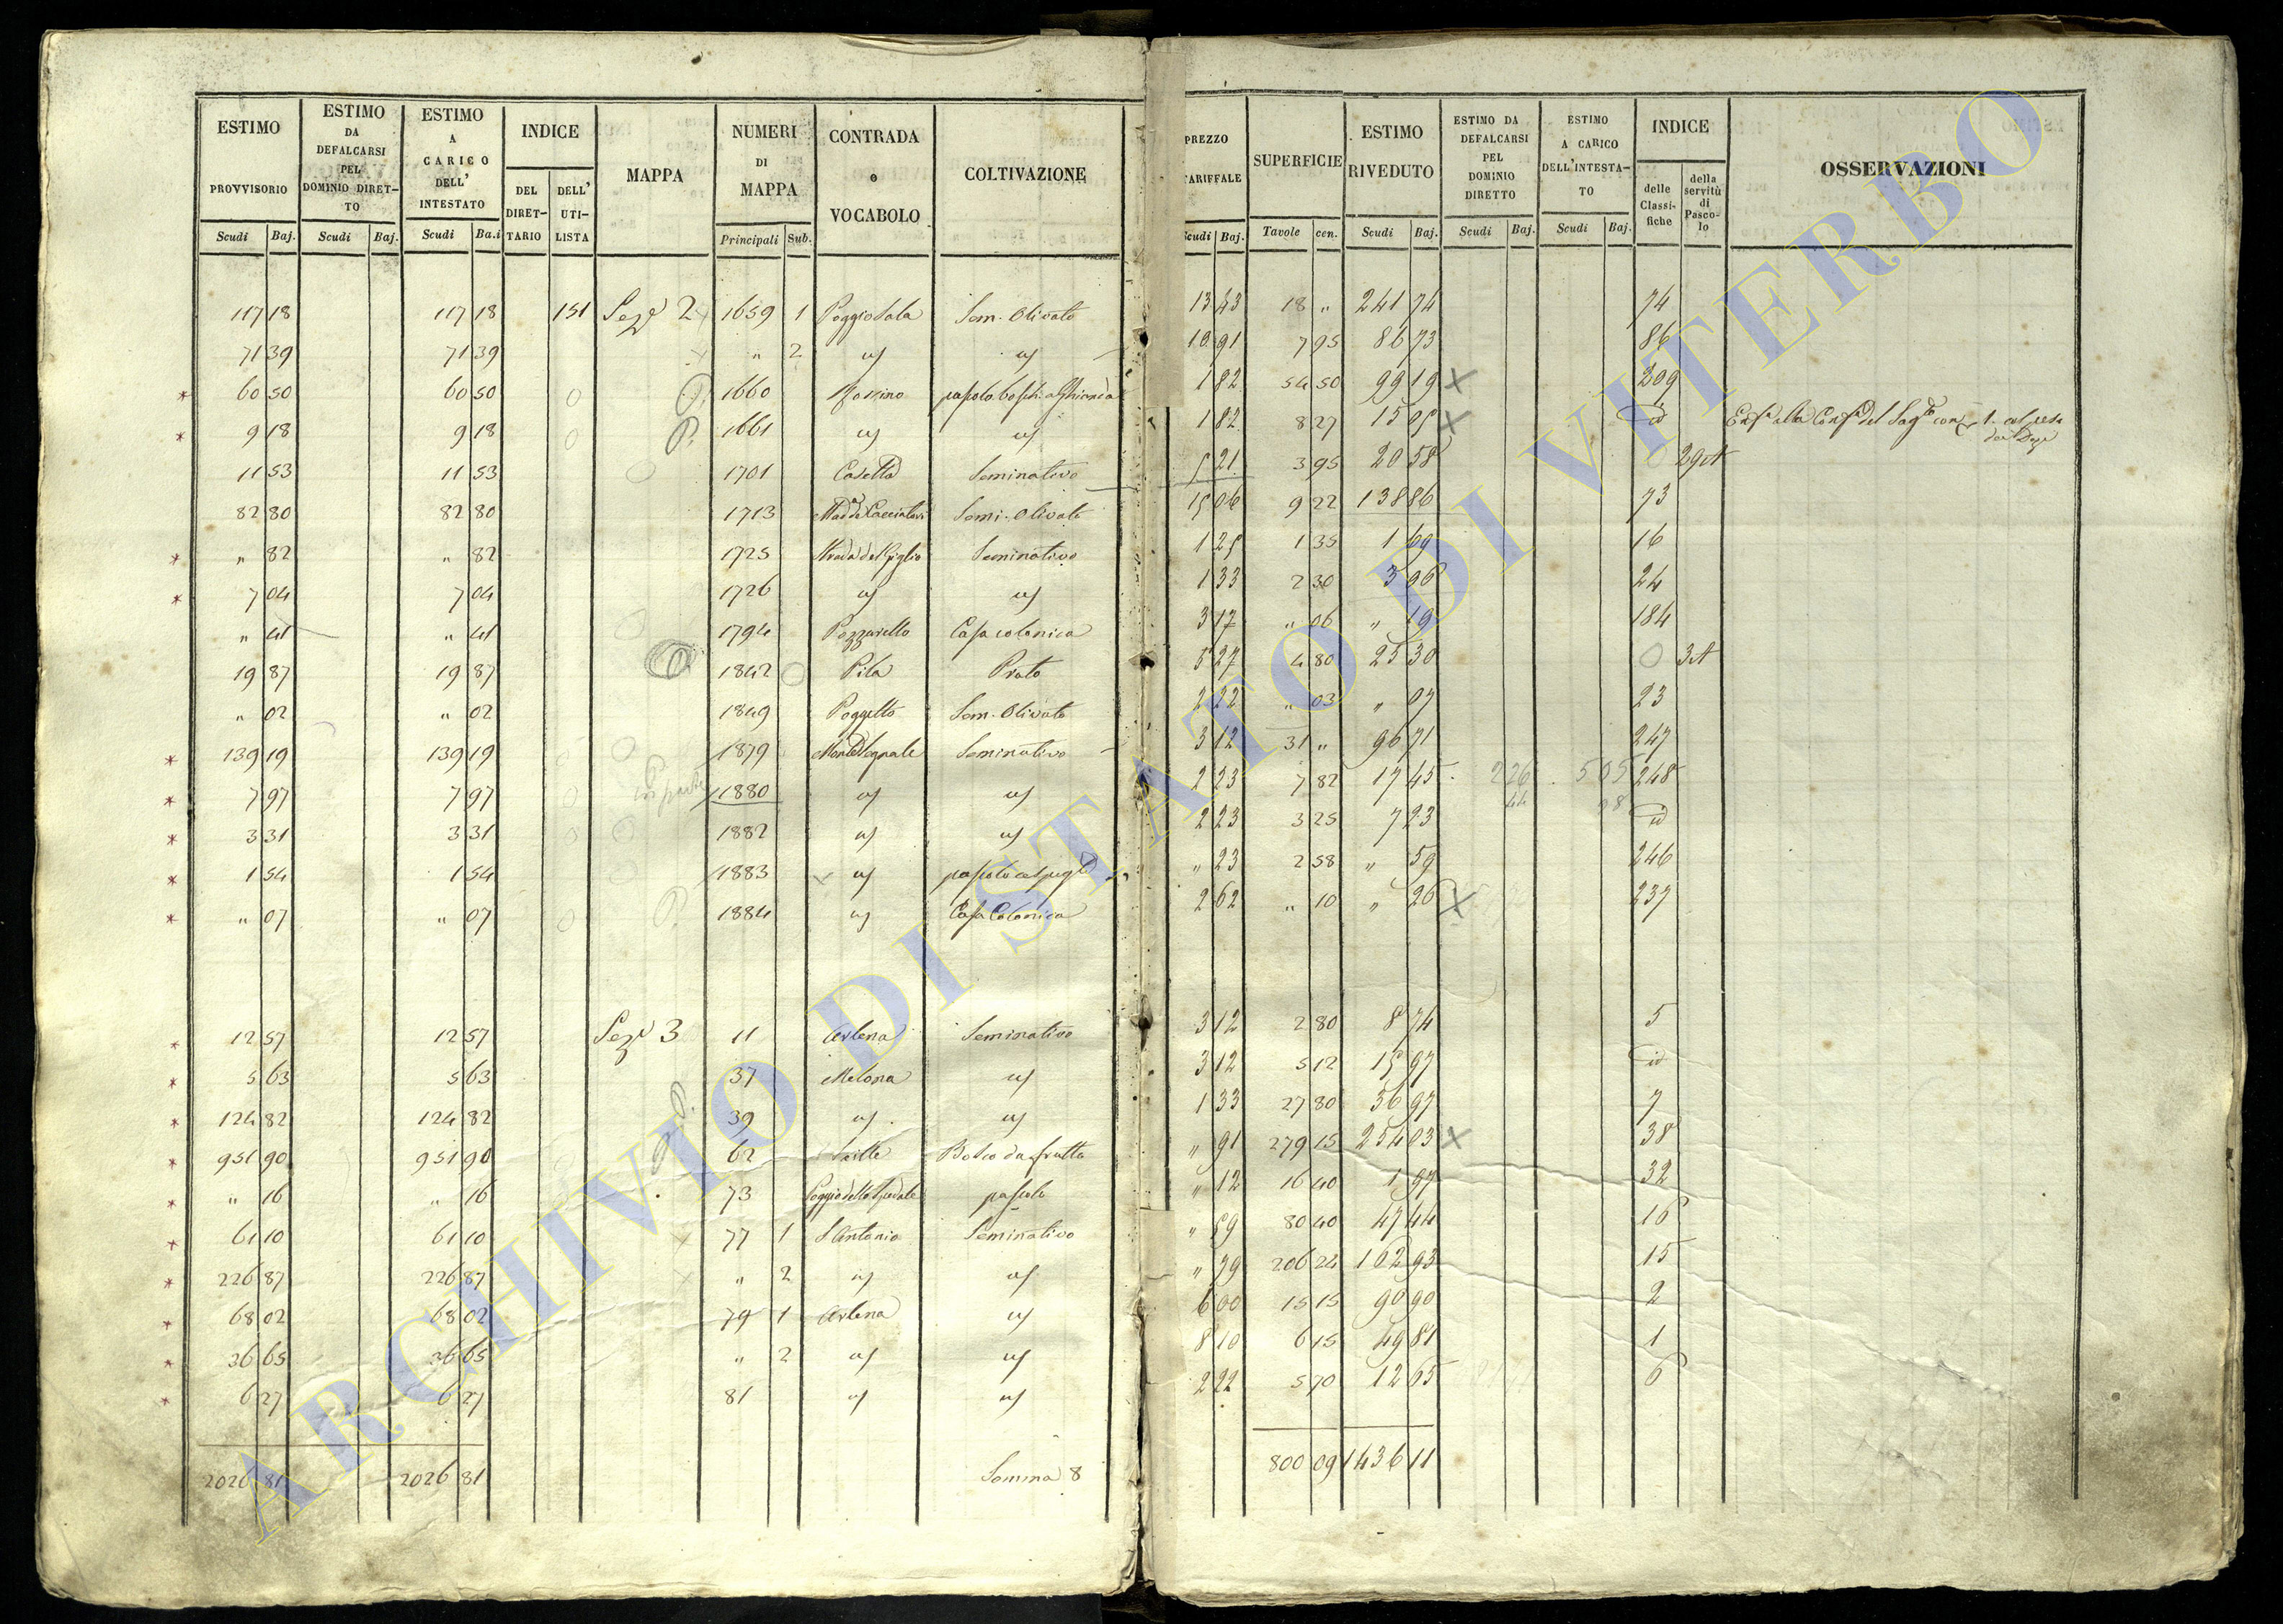 ESTIMO PROVVISORIO Scudi Baj.
ESTIMO DA DEFALCARSI PEL DOMINIO DIRET-TO Scudi Baj.
ESTIMO A CARICO DELL' INTESTATO Scudi Ba.i
INDICE DEL DIRET-TARIO DELL' UTI-LISTA
MAPPA
NUMERI DI MAPPA Principali Sub.
CONTRADA o VOCABOLO
COLTIVAZIONE
PREZZO TARIFFALE Scudi Baj.
SUPERFICIE Tavole cen.
ESTIMO RIVEDUTO Scudi Baj.
ESTIMO DA DEFALCARSI PEL DOMINIO DIRETTO Scudi Baj.
ESTIMO A CARICO DELL'INTESTA-TO Scudi Baj.
INDICE delle Classi-fiche della servitù di Pasco-lo
OSSERVAZIONI
117 18 117 18 151 Sez.e 2 1659 1 Poggio Sala Sem. Olivato 13 43 18 " 241 74 74
71 39 71 39 " 2 " " 10 91 7 95 86 73 86
* 60 50 60 50 1660 pascolo bosch. a Ghianda 1 82 54 50 99 19 209
* 9 18 9 18 1661 " " 1 82 8 27 15 05 id
11 53 11 53 1701 Casetta Seminativo 5 21 3 95 20 58
82 80 82 80 1713 Semi. Olivato 15 06 9 22 138 86 73
* " 82 " 82 1725 Strada del Giglio Seminativo 1 25 1 35 1 69 16
* 7 04 7 04 1726 " " 1 33 2 30 24
" 41 " 41 1794 Pozzarello Casa colonica 3 17 " 06 " 19 184
19 87 19 87 1842 Pila Prato 5 27 4 80 25 30
" 02 " 02 1849 Poggetto Sem. Olivato 2 22 " 03 " 07 23
* 139 19 139 19 1879 Seminativo 3 12 31 " 96 71 247
* 7 97 7 97 1880 " " 2 23 7 82 17 45 248
* 3 31 3 31 1882 " " 2 23 3 25 7 23 id
* 1 54 1 54 1883 " " 23 2 58 " 59 246
* " 07 " 07 1884 " Casa Colonica 2 62 " 10 " 26 237
* 12 57 12 57 Sez.e 3 11 Arlena Seminativo 3 12 2 80 8 74 5
* 5 63 5 63 37 Melona " 3 12 5 12 15 97 id
* 124 82 124 82 39 " " 1 33 27 80 36 97 7
* 951 90 951 90 62 Bosco da frutto " 91 279 15 254 03 38
* " 16 " 16 73 Poggio dello Spedale pascolo " 12 16 40 1 97 32
* 61 10 61 10 77 1 S. Antonio Seminativo " 59 80 40 47 44 16
* 226 87 226 87 " 2 " " " 79 206 24 162 93 15
* 68 02 68 02 79 1 Arlena " 6 00 15 15 90 90 2
* 36 65 36 65 " 2 " " 8 10 6 15 49 81 1
* 6 27 6 27 81 " " 2 22 5 70 12 65 6
2026 81 2026 81 Somma 8 800 09 1436 11
ARCHIVIO DI STATO DI VITERBO